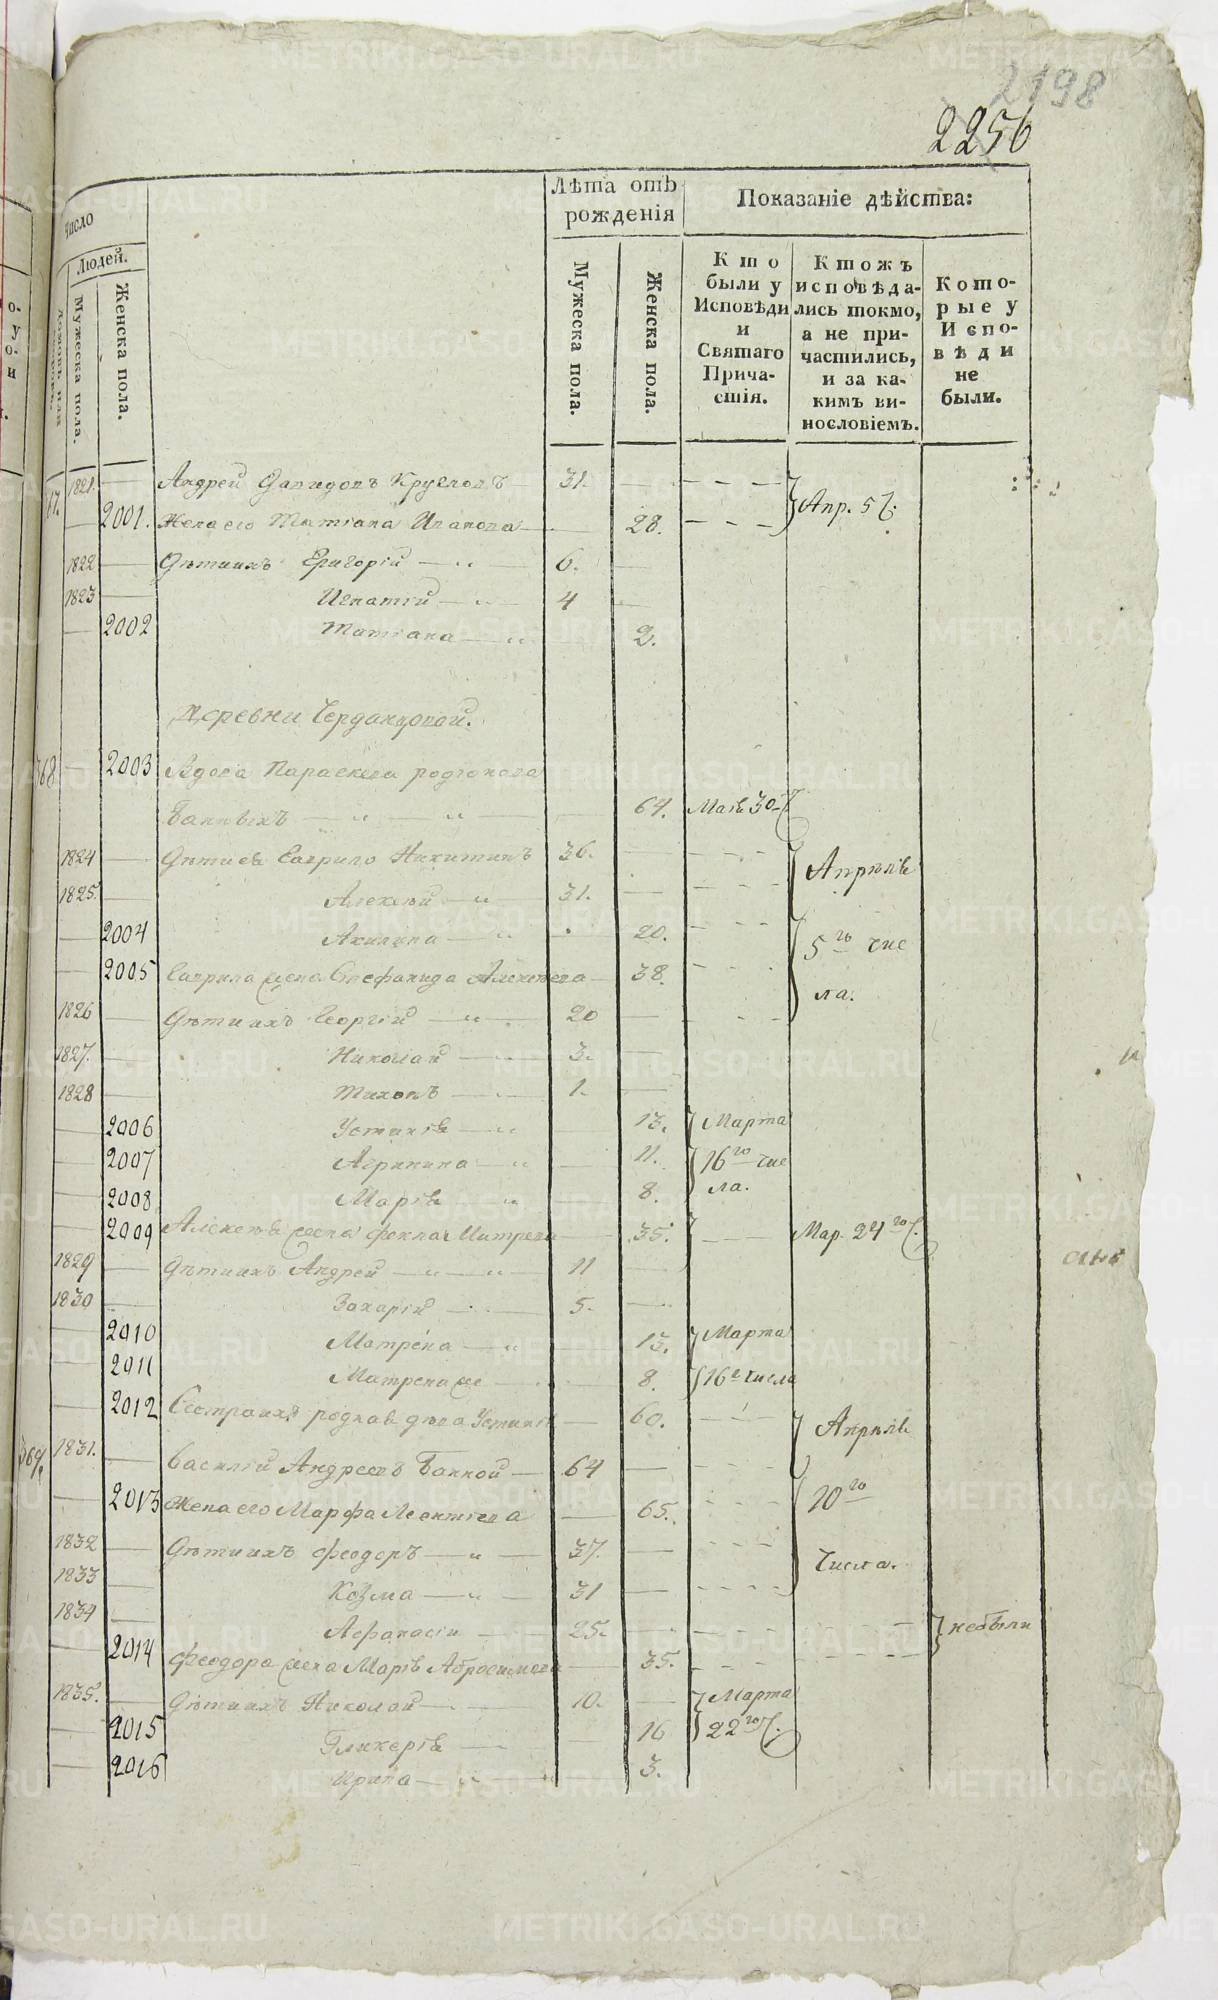 2198
2256
Число
Людей.
Мужеска пола.
Женска пола.
Лѣта отъ рожденія
Мужеска пола.
Женска пола.
Показаніе дѣйства:
Кто были у Исповѣди и Святаго Прича-стія.
Ктожъ исповѣда-лись токмо, а не при-частились, и за ка-кимъ ви-нословіемъ.
Кото-рые у Испо-вѣди не были.
1821. Андрей Давидовъ Кругловъ 31.
2001. Жена его Татіана Иванова 28. Апр. 5
1822 Дѣти ихъ Григорій 6.
1823 Игнатій 4
2002 Татіана 2.
Деревни Черданцовой.
2003 Вдова Параскева Родіонова
Банныхъ 64. Маія 30
1824 Дѣти ея Гаврило Никитинъ 36. Апрѣля
1825. Алексѣй 31.
2004 Акилина 20. 5го чис
2005 Гаврила жена Стефанида Алексѣева 38. ла.
1826 Дѣти ихъ Георгій 20
1827. Николай 3.
1828 Тихонъ 1.
2006 Устинія 13. Марта
2007 Агрипина 11. 16го чис
2008 Марія 8. ла.
2009 Алексѣя жена Фекла Митрева 35. Мар. 24го
1829 Дѣти ихъ Андрей 11
1830 Захарій 5.
2010 Матрена 13. Марта
2011 Матрена же 8. 16е числа
2012 Сестра ихъ родная дѣва Устинія 60. Апрѣля
369. 1831. Василій Андреевъ Банной 64
2013 Жена его Марфа Леонтіева 65. 10го
1832 Дѣти ихъ Феодоръ 37. числа.
1833 Козма 31
1834 Афанасій 25. небыли
2014 Феодора жена Марія Абросимова 35.
1835. Дѣти ихъ Николай 10. Марта
2015 Гликерія 16 22го
2016 Ирина 3.